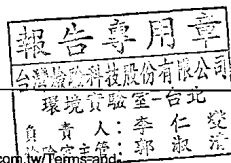 報告專用章
台灣檢驗科技股份有限公司
環境實驗室-台北
負責人：李仁燮
檢驗室主管：郭淑清
com.tw/Terms-and-